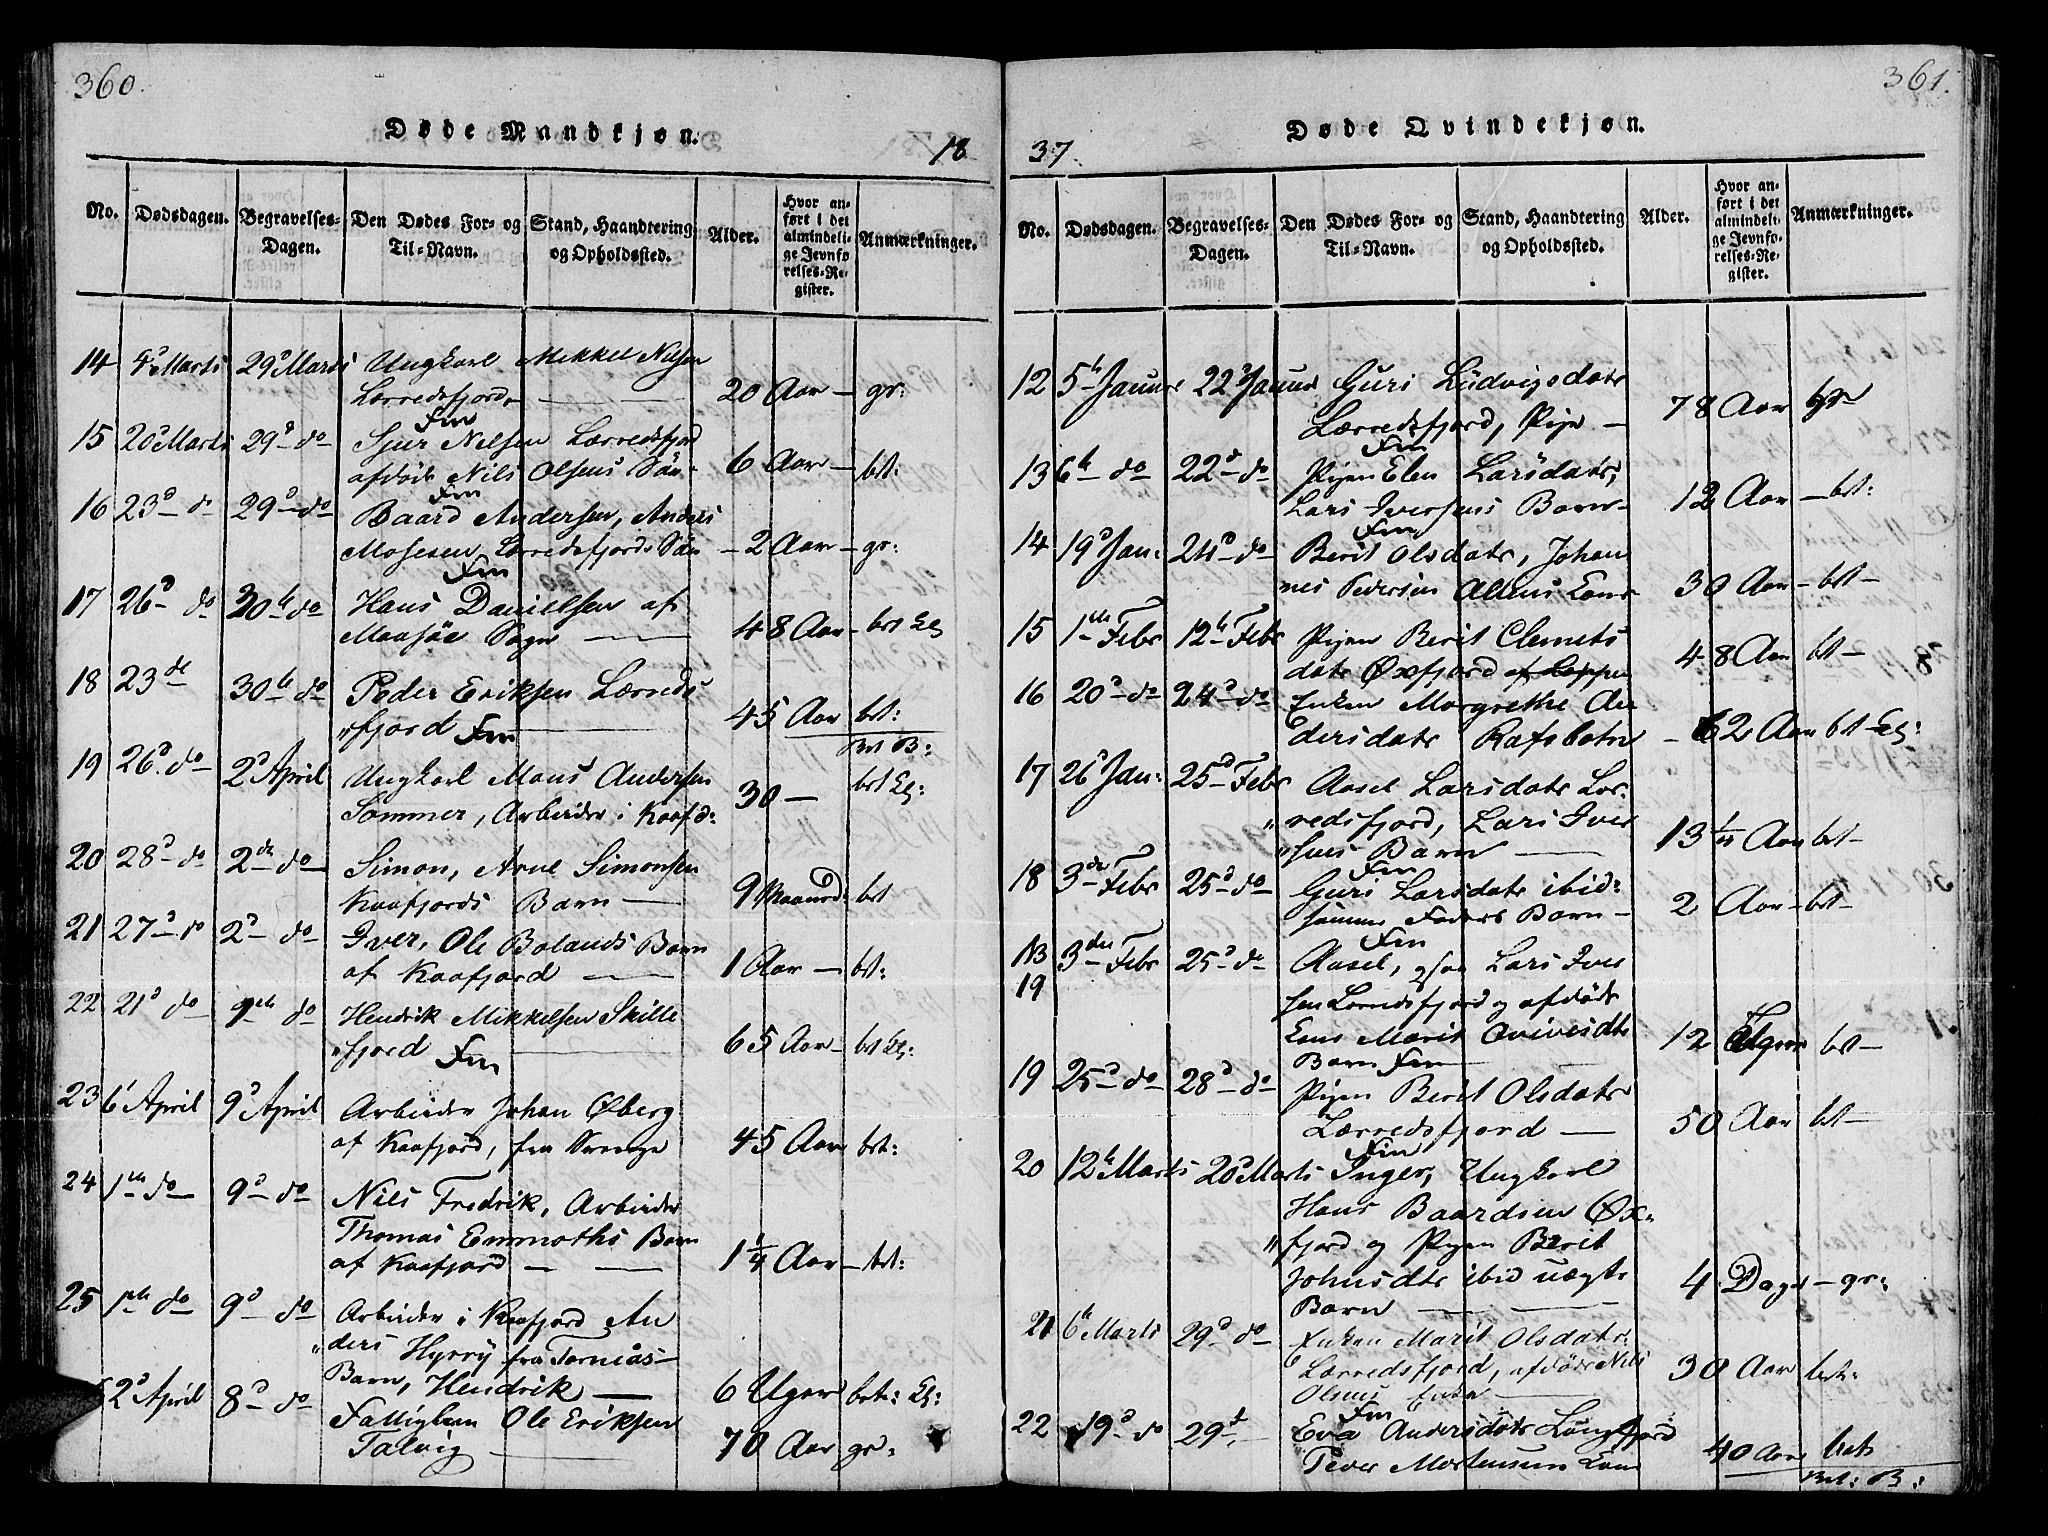 360.
Døde Mandkjøn.
18
No.
Dødsdagen.
Begravelses-
Dagen.
Den Dødes For- og
Til-Navn.
Stand, Haandtering
og Opholdssted.
Alder.
Hvor an-
ført i det
almindeli-
ge Jevnfø-
relses-Re-
gister.
Anmærkninger.
14 4d Marts 29d Marts Ungkarl Mikkel Nilsen
Lerredsfjord 20 Aar gr:
Fin
15 20d Marts 29d do Sjur Nilsen Lærredsfjord
afdøde Nils Olsens Søn 6 Aar bt:
Fin
16 23d do 29d do Baard Andersen, Anders
Mosesen Lærredsfjords Søn 2 Aar gr:
Fin
17 26d do 30te do Hans Danielsen af
Maasøe Sogn 48 Aar brt Eg
18 23de 30te do Peder Eriksen Lærreds
fjord Fin 45 Aar brt:
Brt B:
19 26d. do 2d April Ungkarl Mons Andersen
Sommer, Arbeider i Kaafd: 30 brt Eg:
20 28d do 2de do Simon, Arne Simonsen
Kaafjords Barn 9 Maand: brt
21 27d do 2d do Iver, Ole Bolands Barn
af Kaafjord 1 Aar brt:
22 21d do 9de do Hendrik Mikkelsen Skille
fjord Fin 65 Aar brt Eg:
23 6t April 9d April Arbeider Johan Øberg
af Kaafjord, fra Sverige 45 Aar brt:
24 1ste do 9d do Nils Fredrik, Arbeider
Thomas Emmoths Barn
af Kaafjord 1 1/4 Aar brt:
25 1ste do 9d do Arbeider i Kaafjord An
ders Hyrry fra Torneås
Barn, Hendrik 6 Uger brt: Eg:
2d April 8d do Fattiglem Ole Eriksen
Talvig 70 Aar gr
361.
Døde Qvindekjøn.
37.
No.
Dødsdagen.
Begravelses-
Dagen.
Den Dødes For- og
Til-Navn.
Stand, Haandtering
og Opholdssted.
Alder.
Hvor an-
ført i det
almindeli-
ge Jevnfø-
relses-Re-
gister.
Anmærkninger.
12 5te Januar 22d Januar Guri Ludvigsdatr
Lærredsfjord, Pige 78 Aar
Fin
13 6te do 22d do Pigen Elen Larsdatr,
Lars Iversens Barn 12 Aar brt:
Fin
14 19d Jan: 24d do Berit Olsdatr, Johan
nes Pedersen Altens Kone 30 Aar brt
15 1ste Febr 12te Febr Pigen Berit Clemets
datr Øxfjord af Loppen 48 Aar brt
16 20d do 24d do Enken Margrethe An
dersdatr Rafsbotn 62 Aar brt Eg:
17 26d Jan: 25d Febr Aasel Larsdatr Lær-
redsfjord, Lars Iver
sens Barn 13 1/4 Aar brt
Fin
18 3de Febr 25d do Guri Larsdatr ibid:
samme Faders Barn 2 Aar brt
Fin
NB 3die Febr 25d do Aasel, Lars Iver
19 sen Lerredsfjord og afdøde
Kone Marit Barn Fin 12 Uger brt
19 25d do 28d do Pigen Berit Olsdatr
Lærredsfjord 50 Aar brt
Fin
20 12te Marts 20d Marts Inger, Ungkarl
Hans Baardsen Øx-
fjord og Pigen Berit
Johnsdtr ibid uægte
Barn 4 Dage gr:
21 6te Marts 29d do Enken Marit Olsdatr
Lærredsfjord, afdøde Nils
Olsens Enke 30 Aar brt:
Fin
22 19d do 29d Eva Andersdatr Langfjord
Peder Mortensens Kone 40 Aar brt
Brt: B: